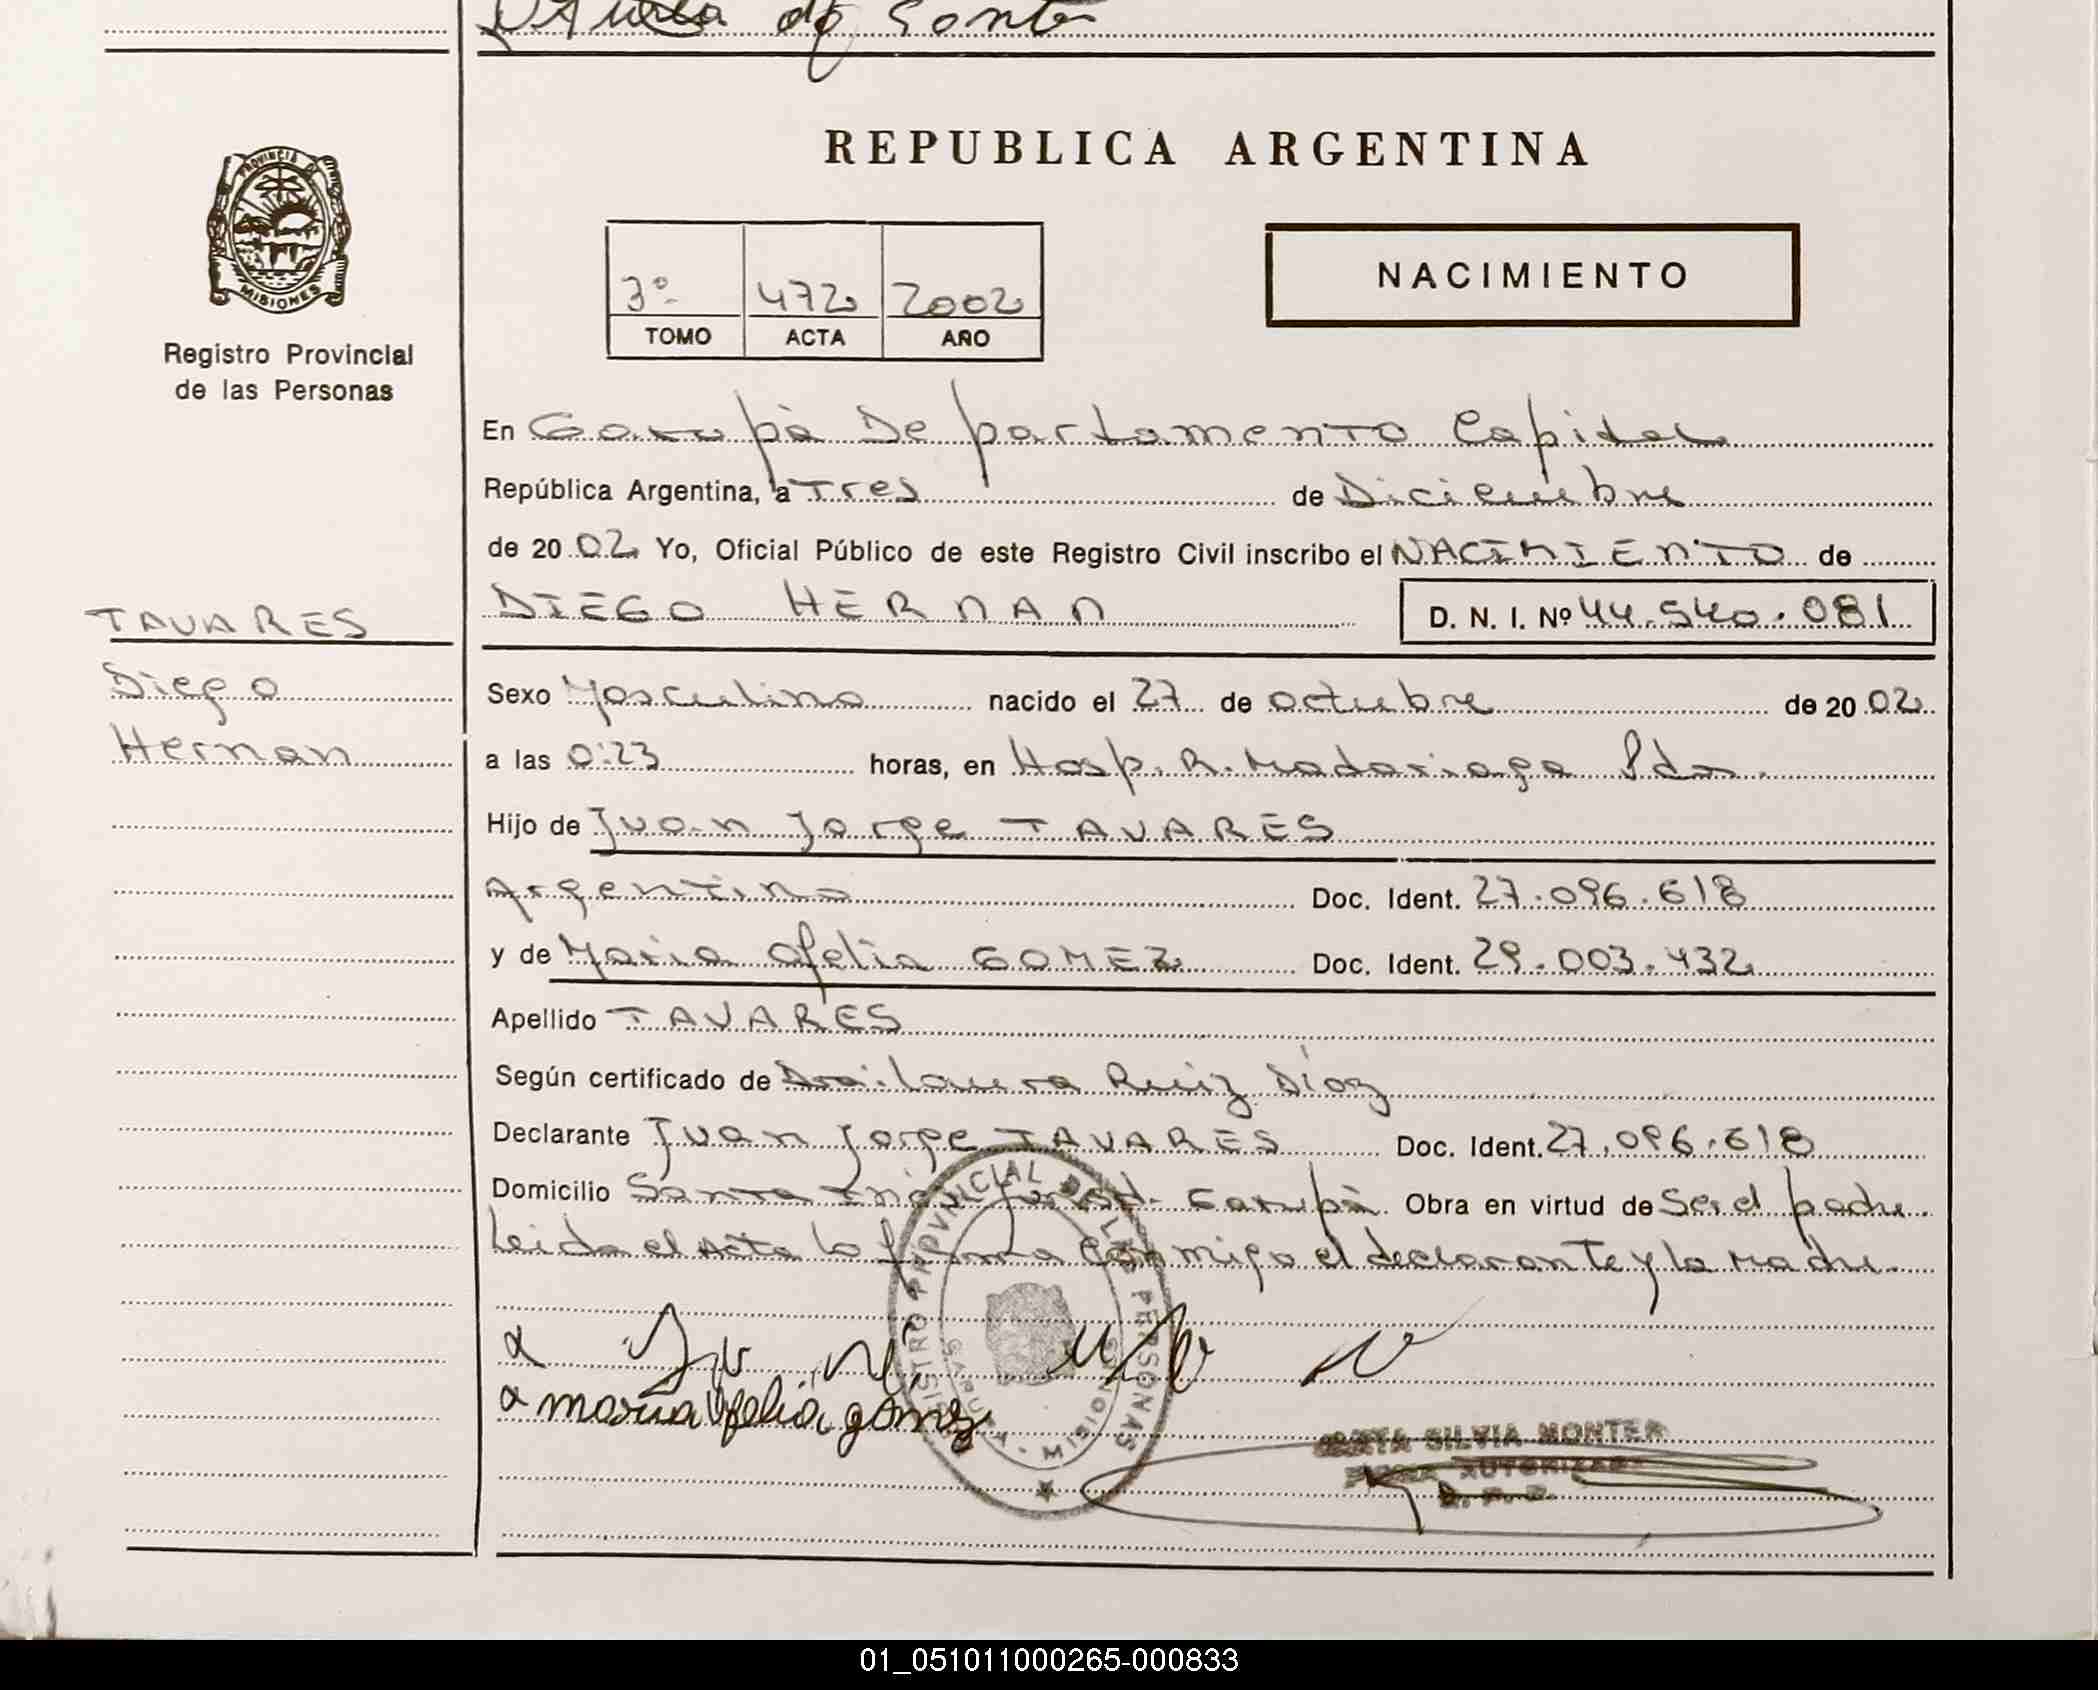 de
REPUBLICA ARGENTINA
PROVINCIA DE
MISIONES
Registro Provincial
de las Personas
3º 472 2002
TOMO ACTA AÑO
NACIMIENTO
En Garupà Departamento Capital
República Argentina, a Tres de Diciembre
de 2002 Yo, Oficial Público de este Registro Civil inscribo el NACIMIENTO de
DIEGO HERNAN D. N. I. Nº 44.540.081
TAVARES
Diego
Hernan
Sexo Masculino nacido el 27 de octubre de 2002
a las 0:23 horas, en Hosp. R. Madariaga Pdas.
Hijo de Juan Jorge TAVARES
Argentino Doc. Ident. 27.096.618
y de Maria Ofelia GOMEZ Doc. Ident. 29.003.432
Apellido TAVARES
Según certificado de Dra. Laura Ruiz Díaz
Declarante Juan Jorge TAVARES Doc. Ident. 27.096.618
Domicilio Santa Garupà Obra en virtud de Ser el padre
Leida el Acta la firma conmigo el declarante y la Madre
maria ofelia gomez
REGISTRO PROVINCIAL DE LAS PERSONAS
GARUPA - MISIONES
SILVIA MONTER
FIRMA AUTORIZADA
01_051011000265-000833